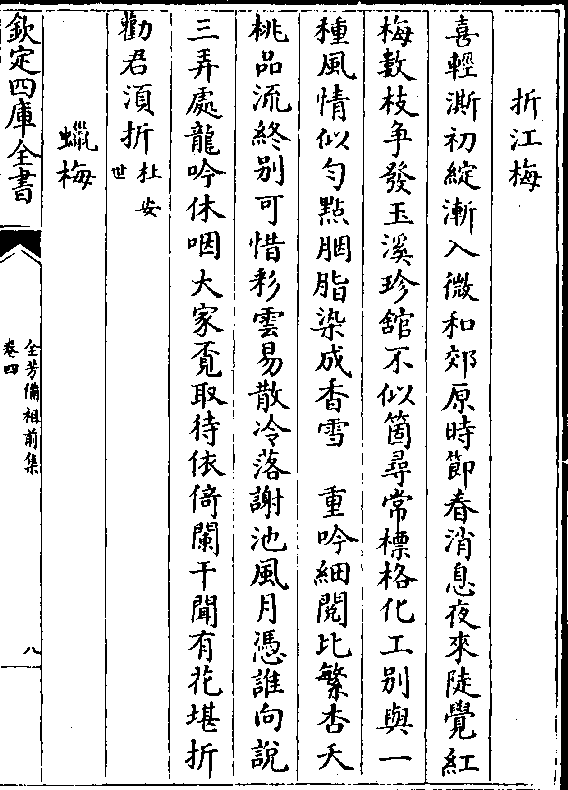 折江梅
喜輕澌初綻漸入微和郊原時節春消息夜來陡覺紅
梅數枝争發玉溪珍舘不似箇尋常標格化工别與一
種風情似勻點胭脂染成香雪　重吟細閱比繁杏夭
桃品流終别可惜彩雲易散冷落謝池風月憑誰向說
三弄處龍吟休咽大家㸔取待依倚闌干聞有花堪折
勸君須折杜安世
蠟梅
欽定四庫全書
全芳備祖前集
卷四
八